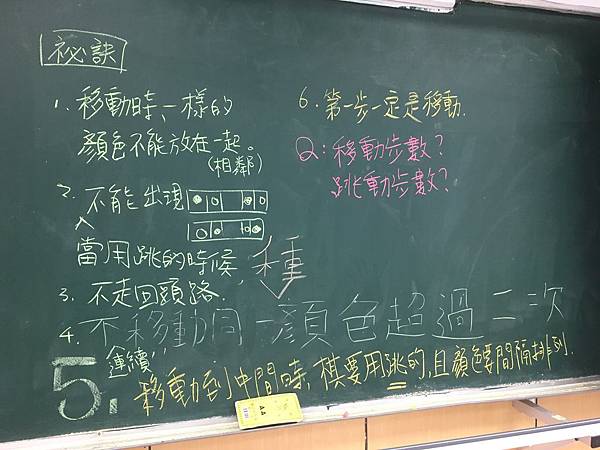 祕訣
1. 移動時、一樣的
顏色不能放在一起。
(相鄰)
2. 不能出現
當用跳的時候,
3. 不走回頭路.
種
4. 不移動同一顏色超過二次
連續
5. 移動到中間時, 棋要用跳的, 且顏色要間隔排列.
6. 第一步一定是移動.
Q: 移動步數?
跳動步數?